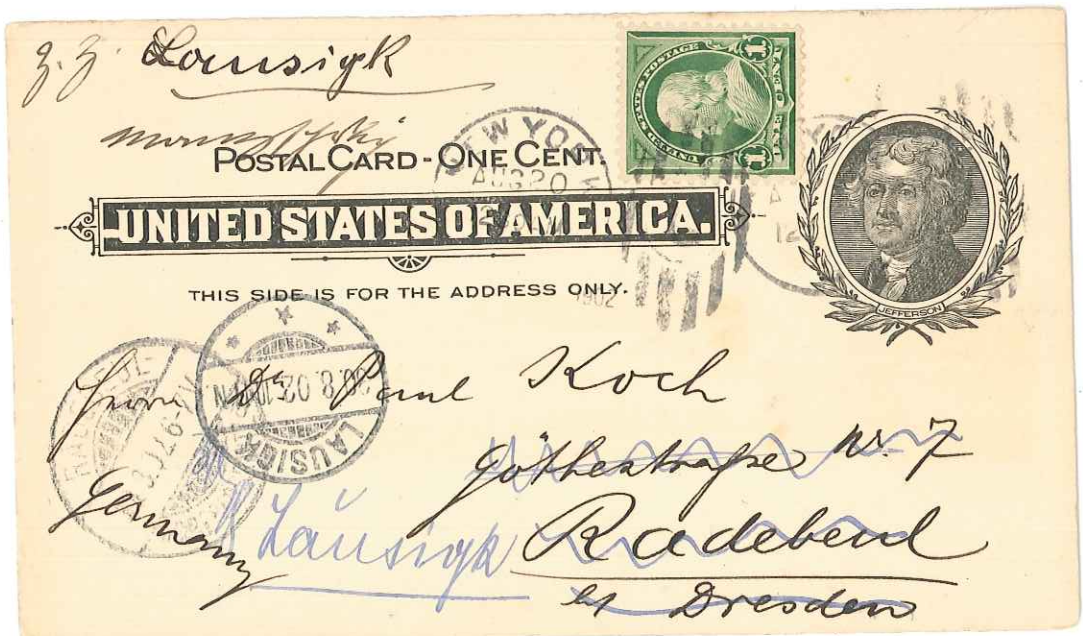 z. Z. Lausigk
POSTAL CARD - ONE CENT.
UNITED STATES OF AMERICA.
THIS SIDE IS FOR THE ADDRESS ONLY.
UNITED STATES POSTAGE
1 ONE CENT 1
NEW YORK
AUG 20
1902
12
JEFFERSON
LAUSIGK
30.8.02.5-
Herrn Dr. Paul Koch
Göthestraße Nr. 7
Radebeul
by Dresden
Germany
Lausigk